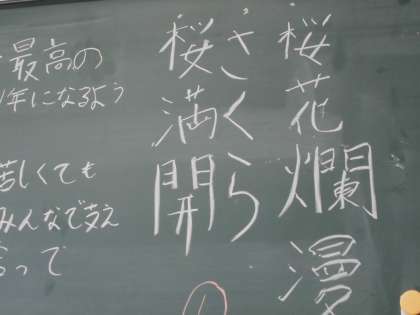 桜花爛漫
さくら
桜満開
最高の
年になるよう
苦しくても
みんなで支え
って